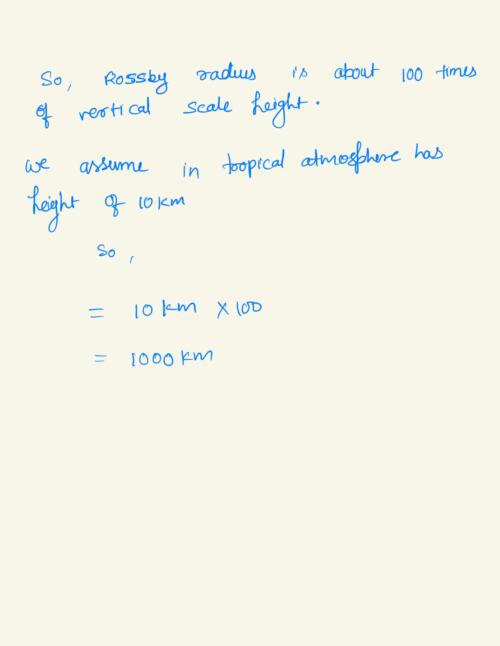 So, Rossby radius is about 100 times
of vertical scale height.
we assume in tropical atmosphere has
height of 10 km
So,
= 10 km × 100
= 1000 km